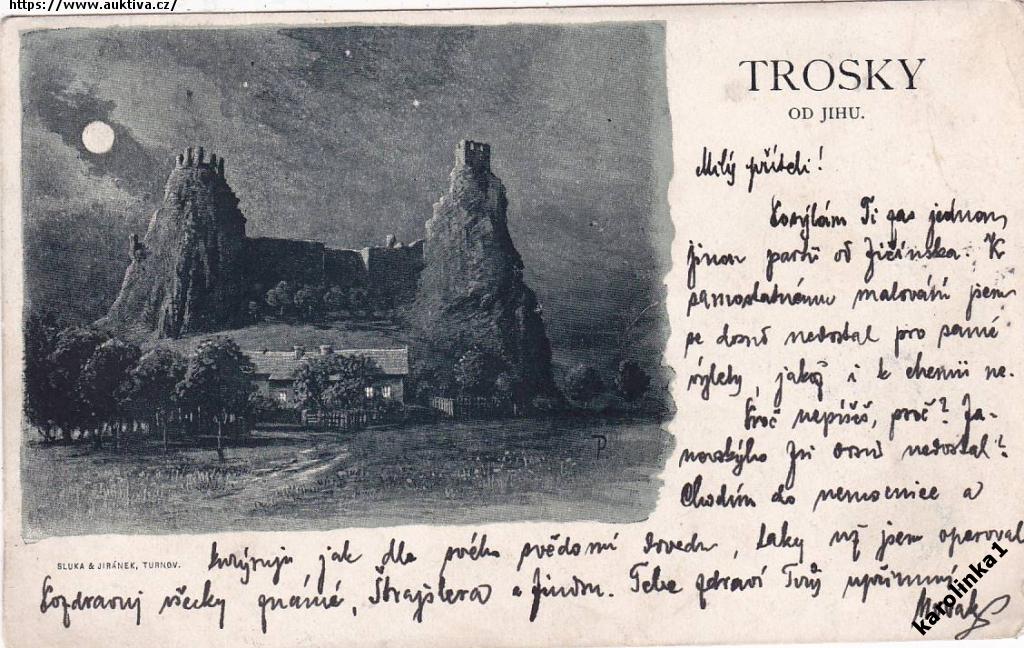 https://www.auktiva.cz/
TROSKY
OD JIHU.
Milý příteli!
Posýlám Ti zas jednou
jinou partii od Jičínska. K
samostatnému malování jsem
se dosud nedostal pro samé
výlety, jakož i k chemii ne.
Proč nepíšeš, proč? Ja-
novského Jsi dosud nedostal?
Chodím do nemocnice a
jak dle svého svědomí dovedu, taky už jsem operoval
Pozdravuj všecky známé, Štrajtlera a Jindru. Tebe zdraví Tvůj upřímný
SLUKA & JIRÁNEK, TURNOV.
karolinka1